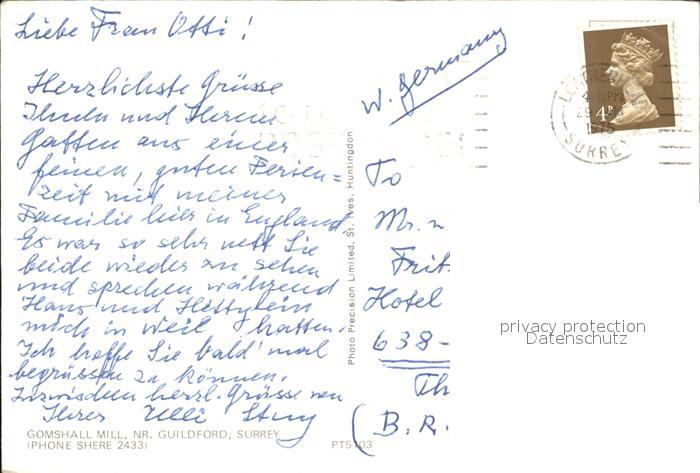 Liebe Frau Otti!
Herzlichste Grüsse
Ihnen und Ihrem
Gatten aus einer
feinen, guten Ferien=
zeit mit meiner
Familie hier in England
Es war so sehr nett Sie
beide wieder zu sehen
und sprechen während
Hans und
mich in Weil hatten.
Ich hoffe Sie bald mal
begrüssen zu können.
Inzwischen herzl. Grüsse von
Ihrer Ulli
GOMSHALL MILL, NR. GUILDFORD, SURREY
(PHONE SHERE 2433)
PT5103
Photo Precision Limited, St. Ives, Huntingdon
W. Germany
To
Mr.
Frit
Hotel
638-
Th
(B.R.
4P
1975
SURREY
privacy protection
Datenschutz